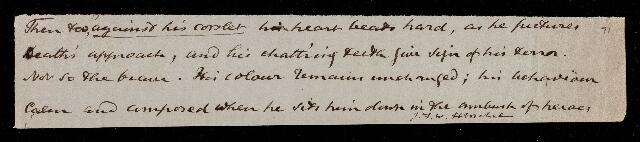 Then too, against his corslet his heart beats hard, as he pictures 71
Death's approach, and his chatt'ring teeth give sign of his terror.
Not so the brave. His colour remains unchanged; his behaviour
Calm and composed when he sits him down in the ambush of heroes
J. F. W. Herschel